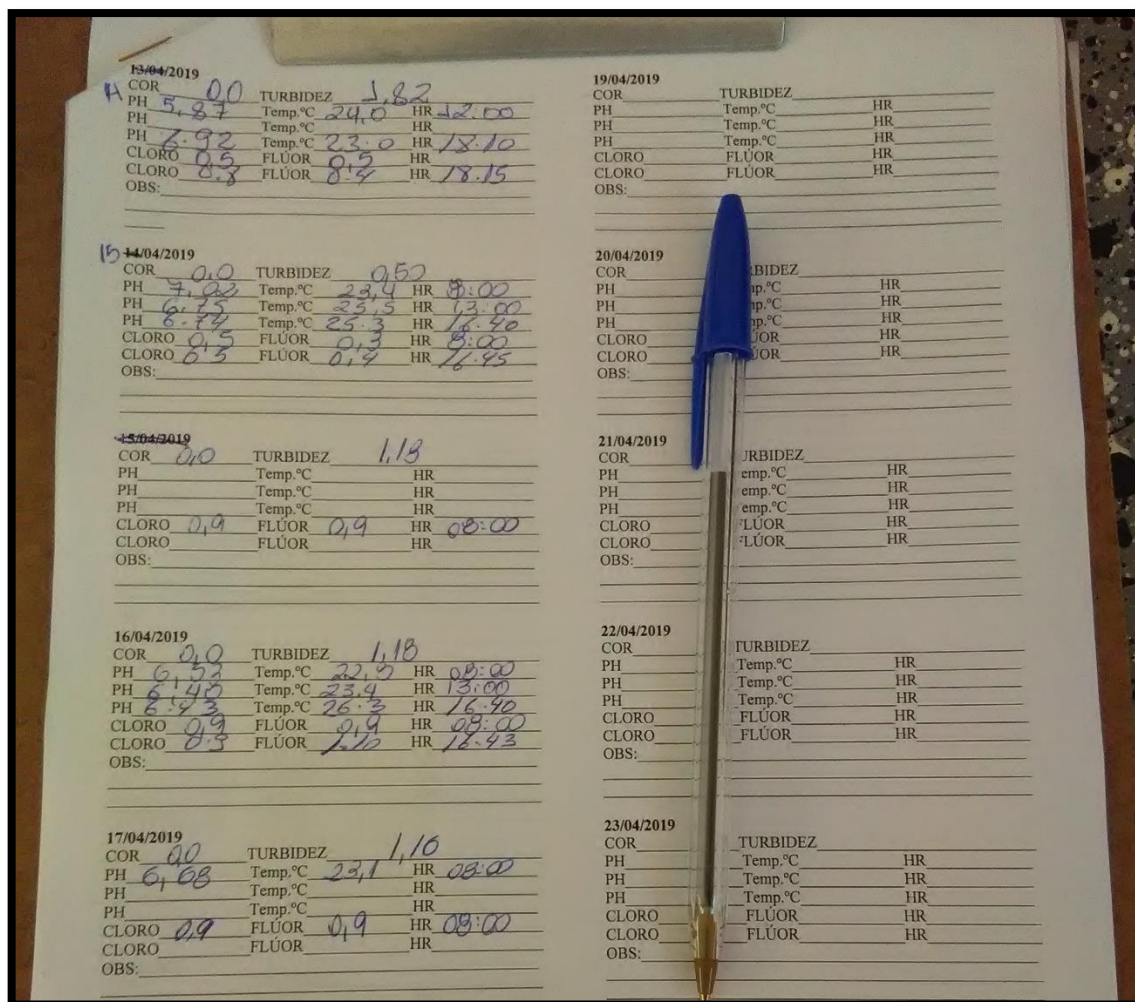 13/04/2019
14
COR 0,0 TURBIDEZ 1,82
PH 5,87 Temp.ºC 24,0 HR 12:00
PH Temp.ºC HR
PH 6.92 Temp.ºC 23.0 HR 18.10
CLORO 0,5 FLÚOR 0,5 HR
CLORO 0.8 FLÚOR 0.4 HR 18.15
OBS:
15 14/04/2019
COR 0,0 TURBIDEZ 0,50
PH 7,02 Temp.ºC 23,4 HR 8:00
PH 6,75 Temp.ºC 25,5 HR 13:00
PH 6.74 Temp.ºC 25.3 HR 16.40
CLORO 0,5 FLÚOR 0,3 HR 8:00
CLORO 0.5 FLÚOR 0,4 HR 16.45
OBS:
15/04/2019
COR 0,0 TURBIDEZ 1,18
PH Temp.ºC HR
PH Temp.ºC HR
PH Temp.ºC HR
CLORO 0,9 FLÚOR 0,9 HR 08:00
CLORO FLÚOR HR
OBS:
16/04/2019
COR 0,0 TURBIDEZ 1,18
PH 6,52 Temp.ºC HR 08:00
PH 6,48 Temp.ºC 23,4 HR 13:00
PH 6.43 Temp.ºC 26.3 HR 16.40
CLORO 0,9 FLÚOR 0,9 HR 08:00
CLORO FLÚOR 1.10 HR 16.43
OBS:
17/04/2019
COR 0,0 TURBIDEZ 1,16
PH 6,68 Temp.ºC 23,1 HR 08:00
PH Temp.ºC HR
PH Temp.ºC HR
CLORO 0,9 FLÚOR 0,9 HR 08:00
CLORO FLÚOR HR
OBS:
19/04/2019
COR TURBIDEZ
PH Temp.ºC HR
PH Temp.ºC HR
PH Temp.ºC HR
CLORO FLÚOR HR
CLORO FLÚOR HR
OBS:
20/04/2019
COR RBIDEZ
PH mp.ºC HR
PH mp.ºC HR
PH mp.ºC HR
CLORO ÚOR HR
CLORO ÚOR HR
OBS:
21/04/2019
COR URBIDEZ
PH emp.ºC HR
PH emp.ºC HR
PH emp.ºC HR
CLORO FLÚOR HR
CLORO FLÚOR HR
OBS:
22/04/2019
COR TURBIDEZ
PH Temp.ºC HR
PH Temp.ºC HR
PH Temp.ºC HR
CLORO FLÚOR HR
CLORO FLÚOR HR
OBS:
23/04/2019
COR TURBIDEZ
PH Temp.ºC HR
PH Temp.ºC HR
PH Temp.ºC HR
CLORO FLÚOR HR
CLORO FLÚOR HR
OBS: